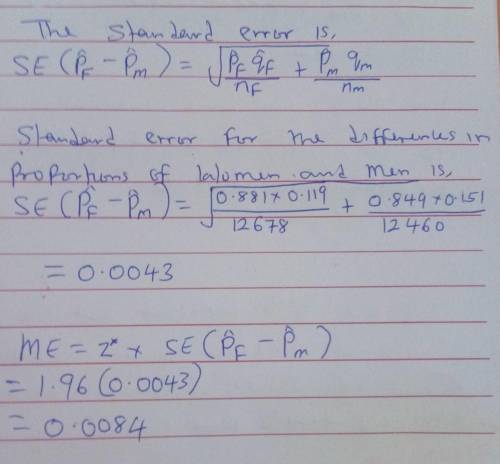 The standard error is,
SE (p̂F − p̂m) = √(p̂F q̂F / nF + p̂m qm / nm)
Standard error for the differences in
proportions of women and men is,
SE (p̂F − p̂m) = √(0.881 × 0.119 / 12678 + 0.849 × 0.151 / 12460)
= 0.0043
ME = z* × SE (p̂F − p̂m)
= 1.96 (0.0043)
= 0.0084